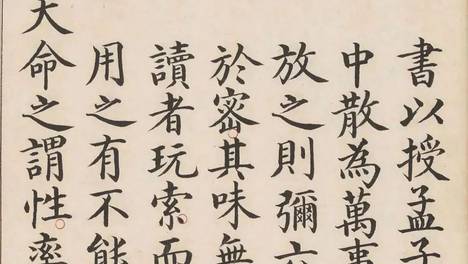 書以授孟子
中散為萬事
放之則彌六
於密。其味無
讀者玩索。而
用之有不能
天命之謂性。率